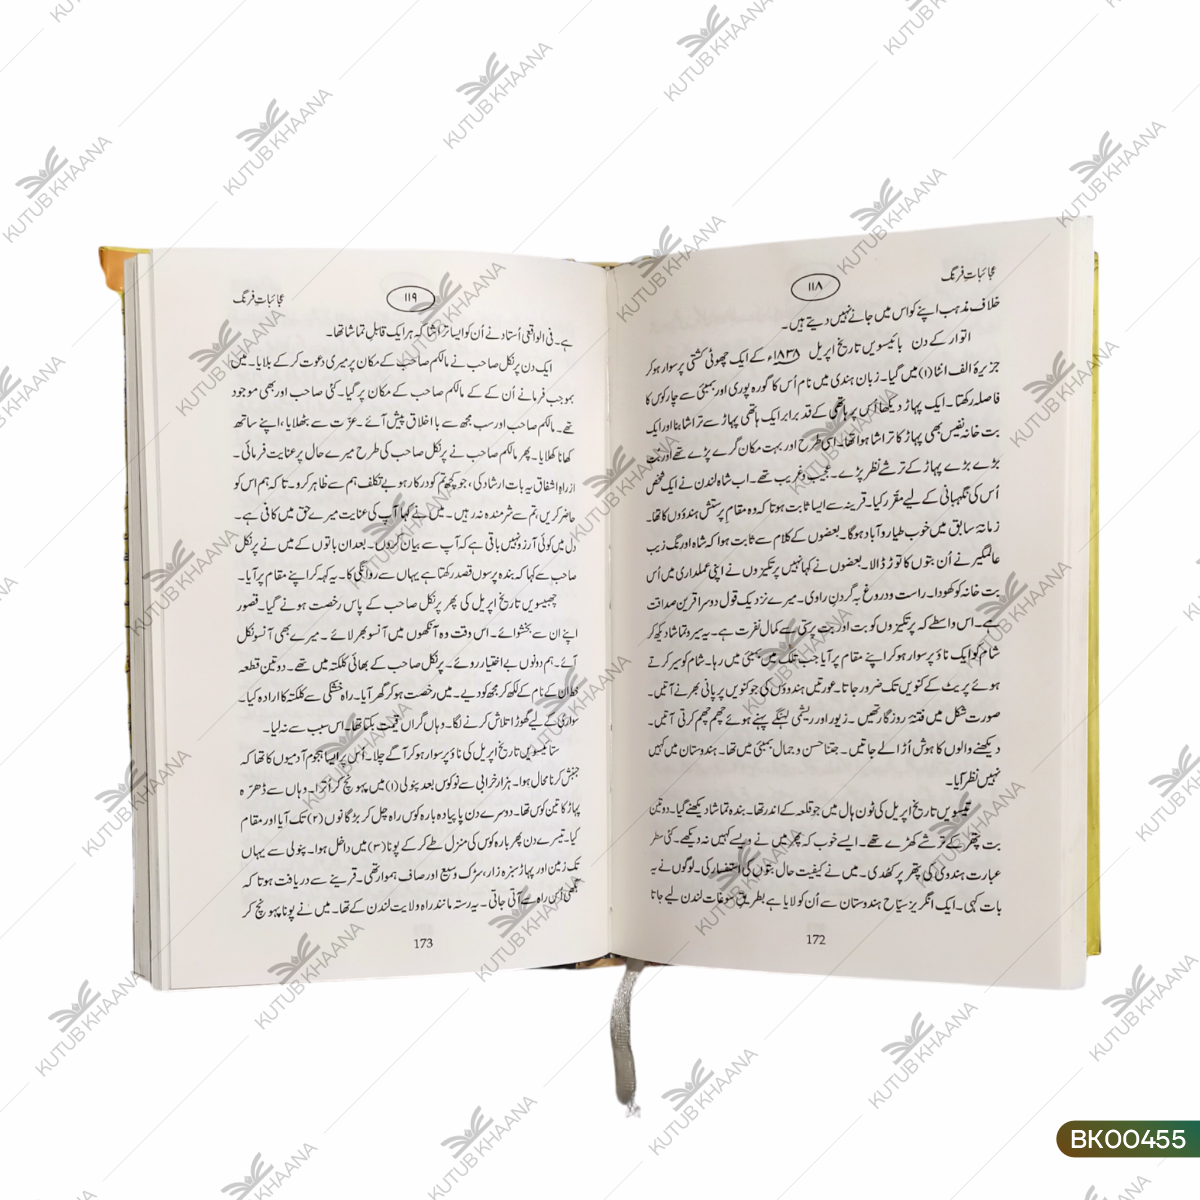 عجائباتِ فرنگ
۱۱۸
خلاف مذہب اپنے کو اس میں جانے نہیں دیتے ہیں۔
اتوار کے دن بائیسویں تاریخ اپریل ۱۸۳۸ء کے ایک چھوٹی کشتی پر سوار ہو کر
جزیرۂ الف انٹا (۱) میں گیا۔ زبان ہندی میں نام اُس کا گورہ پوری اور بمبئی سے چار کوس کا
فاصلہ رکھتا۔ ایک پہاڑ دیکھا اُس پر ہاتھی کے قد برابر ایک ہاتھی پہاڑ سے تراشا بنا اور ایک
بت خانہ نفیس بھی پہاڑ کا تراشا ہوا تھا۔ اسی طرح اور بہت مکان گرے پڑے تھے اور بت
بڑے بڑے پہاڑ کے ترشے نظر پڑے۔ عجیب و غریب تھے۔ اب شاہ لندن نے ایک شخص
اُس کی نگہبانی کے لیے مقرر کیا۔ قرینہ سے ایسا ثابت ہوتا کہ وہ مقام پرستش ہندوؤں کا تھا۔
زمانہ سابق میں خوب طیار و آباد ہوگا۔ بعضوں کے کلام سے ثابت ہوا کہ شاہ اورنگ زیب
عالمگیر نے اُن بتوں کا توڑ ڈالا۔ بعضوں نے کہا نہیں پرتکیزوں نے اپنی عملداری میں اُس
بت خانہ کو کھودا۔ راست و دروغ بہ گردنِ راوی۔ میرے نزدیک قول دوسرا قرین صداقت
ہے۔ اس واسطے کہ پرتکیزوں کو بت اور بت پرستی سے کمال نفرت ہے۔ یہ سیر و تماشا دیکھ کر
شام کو ایک ناؤ پر سوار ہو کر اپنے مقام پر آیا جب تلک میں بمبئی میں رہا۔ شام کو سیر کرتے
ہوئے پریٹ کے کنویں تک ضرور جاتا۔ عورتیں ہندوؤں کی جو کنویں پر پانی بھرنے آتیں۔
صورت شکل میں فتنۂ روزگار تھیں۔ زیور اور ریشمی لہنگے پہنے ہوئے چھم چھم کرتی آتیں۔
دیکھنے والوں کا ہوش اُڑا لے جاتیں۔ جتنا حسن و جمال بمبئی میں تھا۔ ہندوستان میں کہیں
نہیں نظر آیا۔
تیئسویں تاریخ اپریل کی ٹون ہال میں جو قلعہ کے اندر تھا۔ بندہ تماشا دیکھنے گیا۔ دو تین
بت پتھر کے ترشے کھڑے تھے۔ ایسے خوب کہ پھر میں نے ویسے کہیں نہ دیکھے۔ کئی سطر
عبارت ہندوئی کی پتھر پر کھدی۔ میں نے کیفیت حال بتوں کی استفسار کی۔ لوگوں نے یہ
بات کہی۔ ایک انگریز سیّاح ہندوستان سے اُن کو لایا ہے بطریق سوغات لندن لیے جاتا
172
عجائباتِ فرنگ
۱۱۹
ہے۔ فی الواقعی اُستاد نے اُن کو ایسا تراشا کہ ہر ایک قابلِ تماشا تھا۔
ایک دن پرنکل صاحب نے مالکم صاحب کے مکان پر میری دعوت کر کے بلایا۔ میں
بموجب فرمانے اُن کے کے مالکم صاحب کے مکان پر گیا۔ کئی صاحب اور بھی موجود
تھے۔ مالکم صاحب اور سب مجھ سے با اخلاق پیش آئے۔ عزّت سے بٹھلایا، اپنے ساتھ
کھانا کھلایا۔ پھر مالکم صاحب نے پرنکل صاحب کی طرح میرے حال پر عنایت فرمائی۔
از راہِ اشفاق یہ بات ارشاد کی، جو کچھ تم کو درکار ہو بے تکلف ہم سے ظاہر کرو۔ تا کہ ہم اس کو
حاضر کریں ہم سے شرمندہ نہ رہیں۔ میں نے کہا آپ کی عنایت میرے حق میں کافی ہے۔
دل میں کوئی آرزو نہیں باقی ہے کہ آپ سے بیان کروں۔ بعد ان باتوں کے میں نے پرنکل
صاحب سے کہا کہ بندہ پرسوں قصد رکھتا ہے یہاں سے روانگی کا۔ یہ کہہ کر اپنے مقام پر آیا۔
چھبیسویں تاریخ اپریل کی پھر پرنکل صاحب کے پاس رخصت ہونے گیا۔ قصور
اپنے ان سے بخشوائے۔ اس وقت وہ آنکھوں میں آنسو بھر لائے۔ میرے بھی آنسو نکل
آئے۔ ہم دونوں بے اختیار روئے۔ پرنکل صاحب کے بھائی کلکتہ میں تھے۔ دو تین قطعہ
خط ان کے نام کے لکھ کر مجھ کو دیے۔ میں رخصت ہو کر گھر آیا۔ راہ خشکی سے کلکتہ کا ارادہ کیا۔
سواری کے لیے گھوڑا تلاش کرنے لگا۔ وہاں گراں قیمت بکتا تھا۔ اس سبب سے نہ لیا۔
ستائیسویں تاریخ اپریل کی ناؤ پر سوار ہو کر آگے چلا۔ اُس پر ایسا ہجوم آدمیوں کا تھا کہ
جنبش کرنا محال ہوا۔ ہزار خرابی سے نو کوس بعد پنولی (۱) میں پہونچ کر اُترا۔ وہاں سے ڈھرّہ
پہاڑ کا تین کوس تھا۔ دوسرے دن پا پیادہ بارہ کوس راہ چل کر بڑگانوں (۲) تک آیا اور مقام
کیا۔ تیسرے دن پھر بارہ کوس کی منزل طے کر کے پونا (۳) میں داخل ہوا۔ پنولی سے یہاں
تک زمین اور پہاڑ سبزہ زار، سڑک وسیع اور صاف ہموار تھی۔ قرینے سے دریافت ہوتا کہ
بگھی اُس راہ سے آتی جاتی۔ یہ رستہ مانند راہ ولایت لندن کے تھا۔ میں نے پونا پہونچ کر
173
KUTUB KHAANA
BK00455